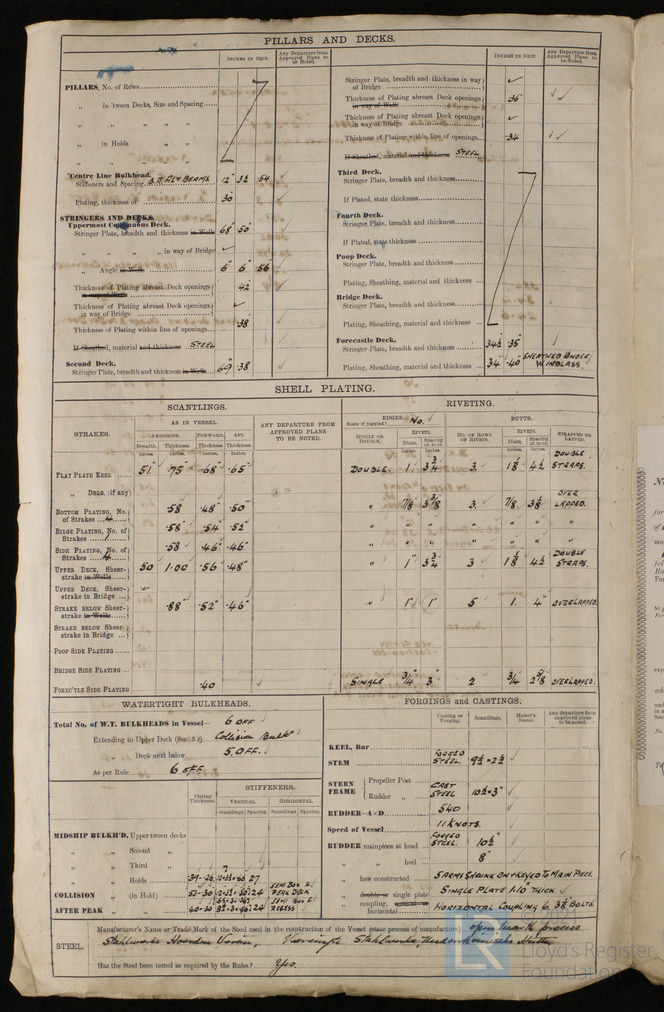 PILLARS AND DECKS.
INCHES IN SHIP.
Any Departure from Approved Plans to be Noted.
PILLARS, No. of Rows
„ in 'tween Decks, Size and Spacing
„ „ „ „
„ in Holds „ „
„ „ „
Centre Line Bulkhead.
Stiffeners and Spacing 12" 32 54
Plating, thickness of 30
STRINGERS AND DECKS.
Uppermost Continuous Deck.
Stringer Plate, breadth and thickness in Wells 68" 50"
„ „ „ „ in way of Bridge
„ Angle in Wells 6" 6" 56"
Thickness of Plating abreast Deck openings in way of Wells 42
Thickness of Plating abreast Deck openings in way of Bridge
Thickness of Plating within line of openings 38"
If Sheathed, material and thickness STEEL
Second Deck.
Stringer Plate, breadth and thickness in Wells 69" 38
INCHES IN SHIP.
Any Departure from Approved Plans to be Noted.
Stringer Plate, breadth and thickness in way of Bridge
Thickness of Plating abreast Deck openings in way of Wells 36
Thickness of Plating abreast Deck openings in way of Bridge
Thickness of Plating within line of openings 34
If Sheathed, material and thickness STEEL
Third Deck.
Stringer Plate, breadth and thickness
If Plated, state thickness
Fourth Deck.
Stringer Plate, breadth and thickness
If Plated, state thickness
Poop Deck.
Stringer Plate, breadth and thickness
Plating, Sheathing, material and thickness
Bridge Deck.
Stringer Plate, breadth and thickness
Plating, Sheathing, material and thickness
Forecastle Deck.
Stringer Plate, breadth and thickness 34½ .35"
Plating, Sheathing, material and thickness 34" .40" SHEATHED UNDER WINDLASS.
SHELL PLATING.
SCANTLINGS.
RIVETING.
STRAKES.
AS IN VESSEL.
AMIDSHIPS. FORWARD. AFT.
Breadth. Thickness. Thickness. Thickness.
Inches. Inches. Inches. Inches.
ANY DEPARTURE FROM APPROVED PLANS TO BE NOTED.
EDGES. State if joggled? No.
SINGLE OR DOUBLE.
RIVETS.
Diam. Spacing cr. to cr.
Inches. Inches.
BUTTS.
NO. OF ROWS OF RIVETS.
RIVETS.
Diam. Spacing cr. to cr.
Inches. Inches.
STRAPPED OR LAPPED.
FLAT PLATE KEEL 51" .75" .68" .65" DOUBLE 1" 3¾ 3. 1⅛ 4½ DOUBLE STRAPS.
„ DBLG. (if any)
BOTTOM PLATING, No. of Strakes 4 .58 .48" .50" „ 7/8 3⅜ 3. 7/8 OVER LAPPED.
BILGE PLATING, No. of Strakes 1 .58" .54" .52" „ „ „ „ „ „ „
SIDE PLATING, No. of Strakes 4 .58 .46" .46" „ „ „ „ „ „ „
UPPER DECK, Sheerstrake in Wells 50 1.00 .56 .48" „ 1" 3¾ 3 1⅛ 4½ DOUBLE STRAPS.
UPPER DECK, Sheerstrake in Bridge
STRAKE BELOW Sheerstrake in Wells .88" .52" .46" „ 5 1. 4" OVERLAPPED.
STRAKE BELOW Sheerstrake in Bridge
POOP SIDE PLATING
BRIDGE SIDE PLATING
FOREC'TLE SIDE PLATING .40 SINGLE ¾ 3" 2 ¾ 2⅝ OVERLAPPED.
WATERTIGHT BULKHEADS.
Total No. of W.T. BULKHEADS in Vessel— 6 OFF
Extending to Upper Deck Collision Bulk'd
„ Deck next below 5 OFF.
As per Rule 6 OFF
Plating Thickness
STIFFENERS.
VERTICAL. HORIZONTAL.
Scantlings Spacing Scantlings Spacing
MIDSHIP BULKH'D, Upper tween decks
„ „ Second „
„ „ Third „
„ „ Holds 27
COLLISION „ (in Hold) 24
AFTER PEAK „ „ 24 RECESS
FORGINGS and CASTINGS.
Casting or Forging.
Scantlings.
Maker's Name.
Any departure from approved plans to be noted.
KEEL, Bar
STEM FORGED STEEL. 9½ × 2½
STERN FRAME
Propeller Post
Rudder „
CAST STEEL 10½ × 3"
RUDDER—A×D 540
Speed of Vessel 11 KNOTS.
RUDDER mainpiece at head FORGED STEEL. 10½"
„ „ heel 8"
„ how constructed 5 ARMS SHRINK ON & KEYED TO MAIN PIECE
„ double or single plate SINGLE PLATE 1.10" THICK
„ coupling, vertical or horizontal HORIZONTAL COUPLING 6. 3⅜ BOLTS.
STEEL.
Manufacturer's Name or Trade Mark of the Steel used in the construction of the Vessel (state process of manufacture) open hearth process
Stahlwerke Verein,
Has the Steel been tested as required by the Rules? Yes.
© 2021
LR
Lloyd's Register
Foundation